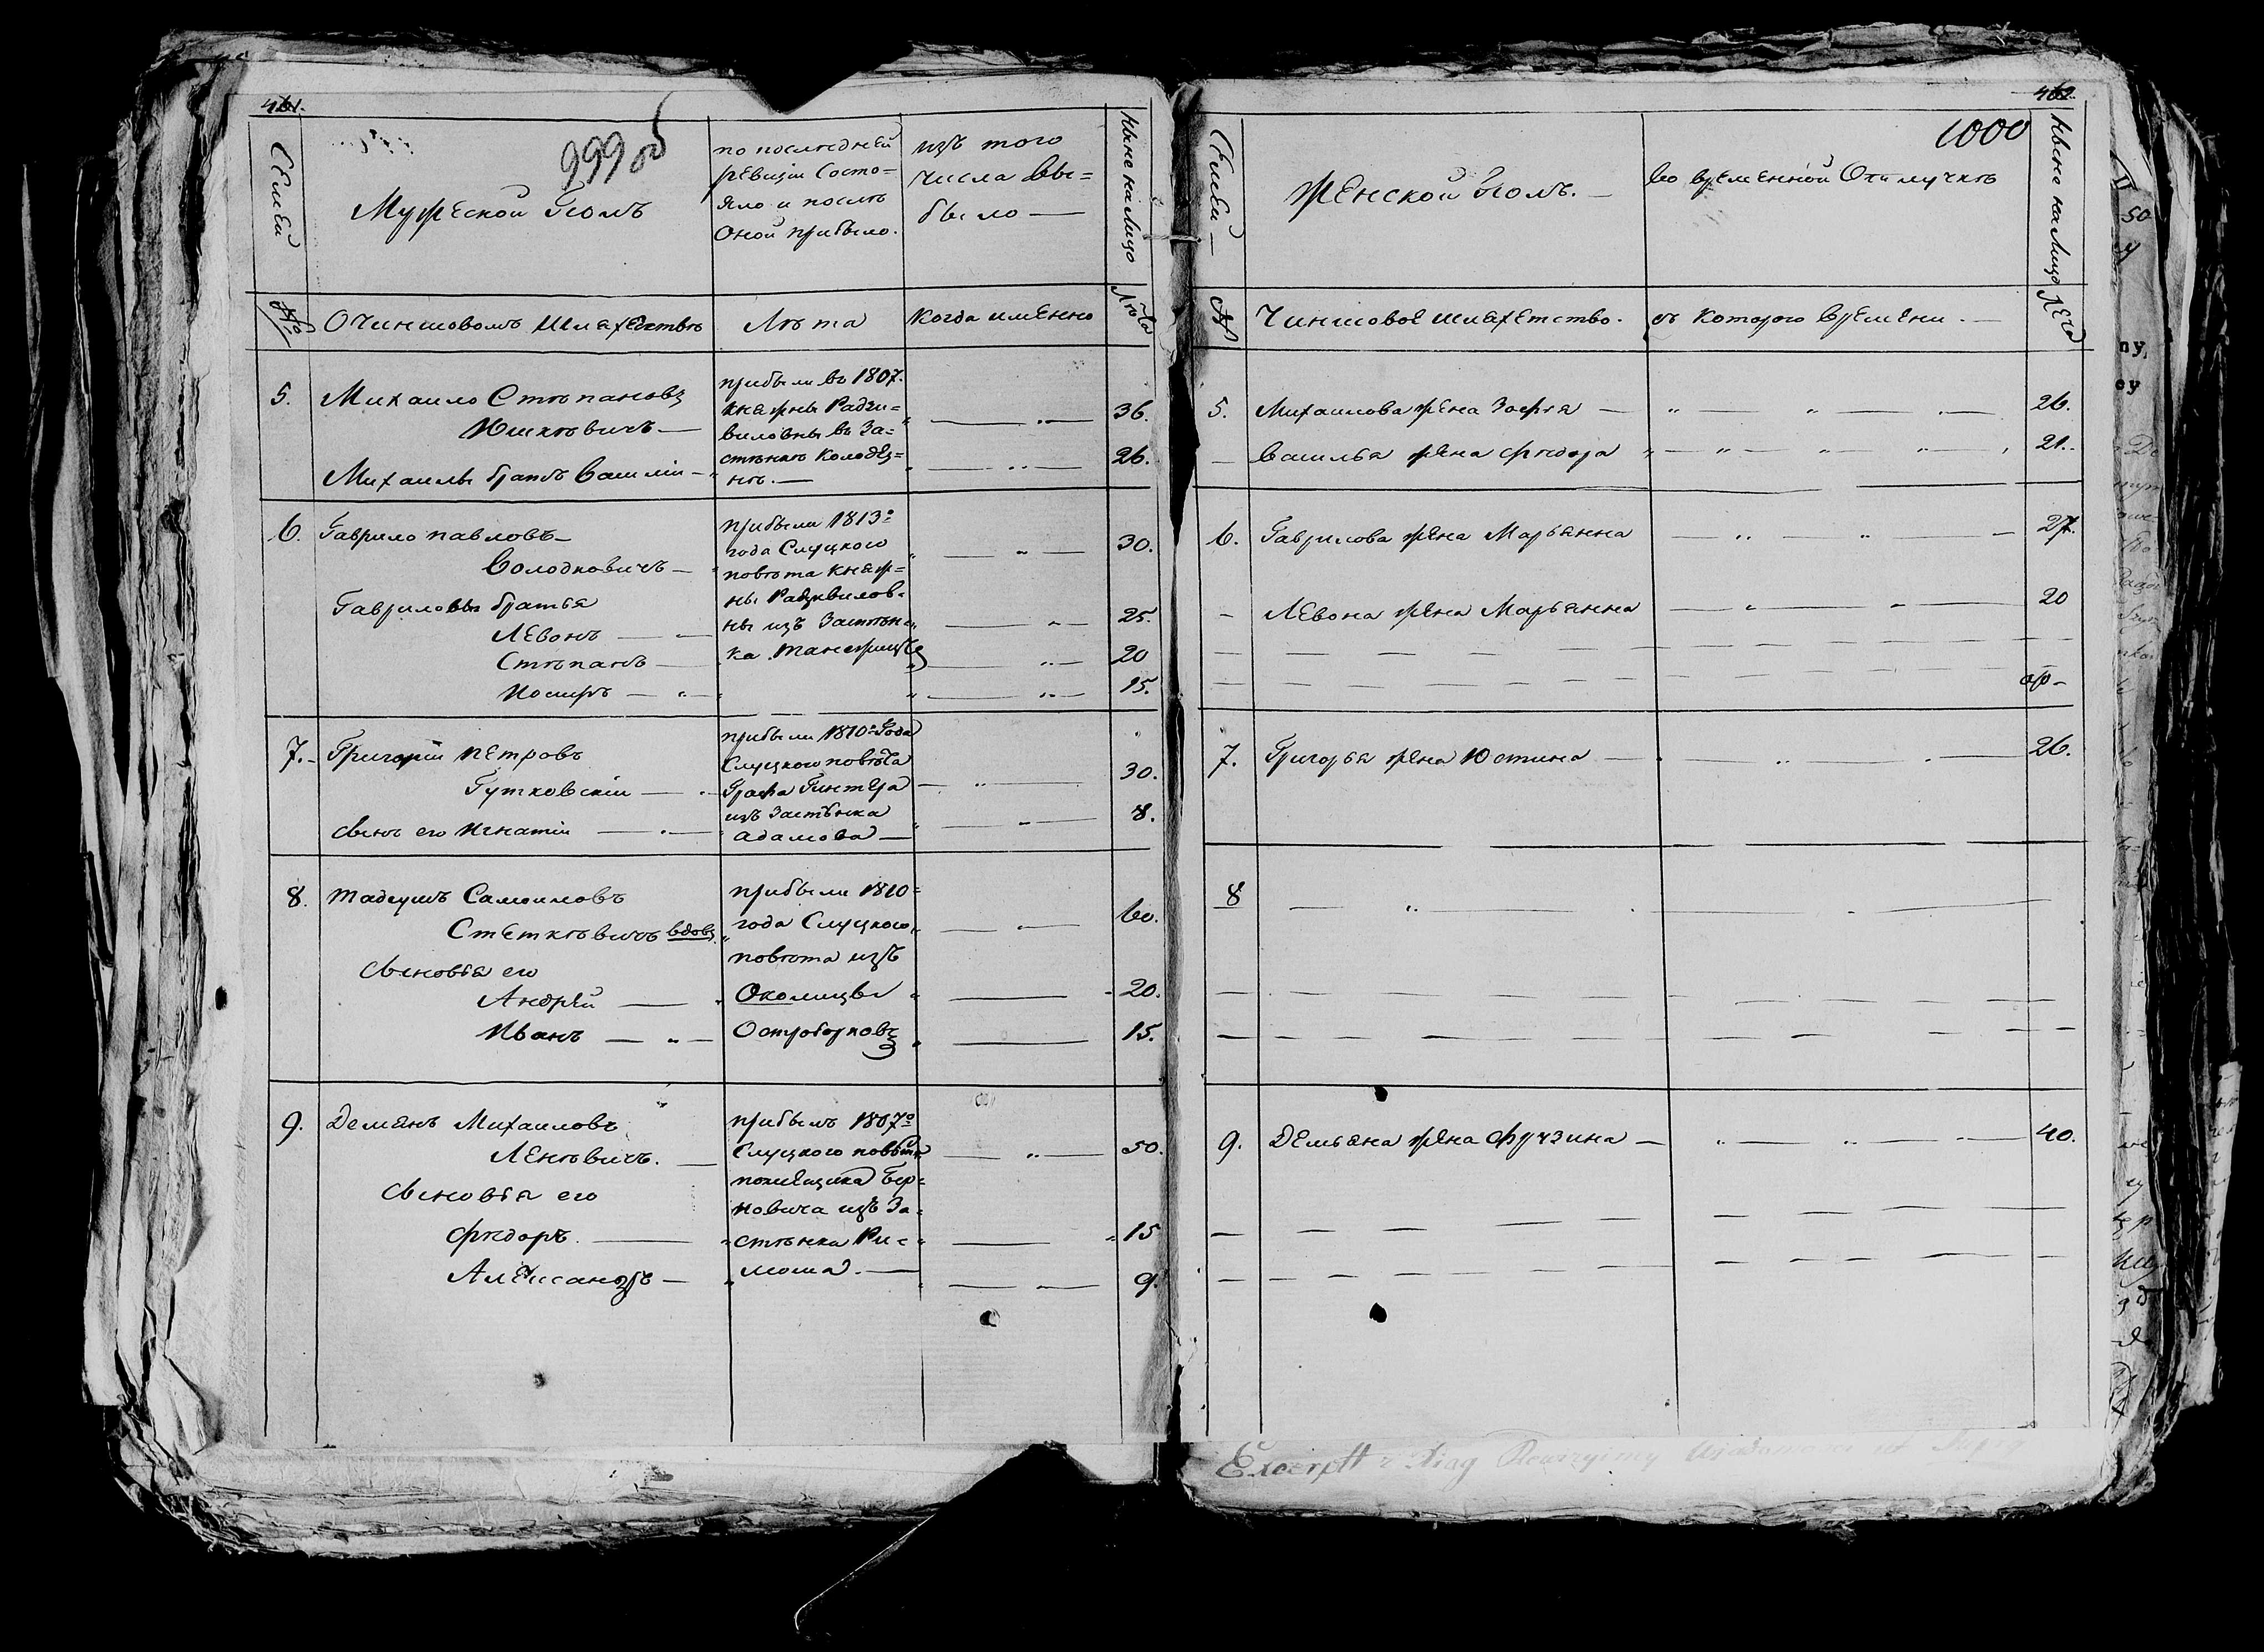 461.
999 об
Семей
Мужеской Полъ
по последней
ревизіи Состо=
яло и послѣ
Оной прибыло.
изъ того
числа вы=
было
Ныне на Лицо
№
О Чиншовомъ Шляхецтвѣ
Лѣта
когда именно
Лѣта
5. Михаило Стѣпановъ
Юшкѣвичъ
прибыли въ 1807.
княжны Радзи=
виловны въ За=
стѣнкѣ Колодез=
нѣ.
36.
Михаилы братъ Василій
26.
6. Гаврило павловъ
Володковичъ
прибыли 1813º
года Слуцкого
повѣта княж=
ны Радзивилов=
ны изъ Застѣн=
ка
30.
Гавриловы братья
Левонъ
25.
Стѣпанъ
20
Иосифъ
15.
7. Григорій петровъ
Гутковскій
прибыли 1810º Года
Слуцкого повѣта
Графа Гинтера
изъ Застѣнка
адамова
30.
сынъ его Игнатій
8.
8. тадеушъ Самоиловъ
Стеткѣвичъ вдовъ
прибыли 1810=
года Слуцкого
повѣта изъ
Околицы
60.
Сыновья его
Андрей
20.
Иванъ
15.
9. Демянъ Михаиловъ
Ленкѣвичъ.
прибылъ 1807º
Слуцкого повѣта
помещика Бер=
новича изъ За=
стѣнка Ри=
50.
Сыновья его
Фѣдоръ.
15
Александръ
9.
462.
1000
Семей
Женской Полъ.
во временной Отлучкѣ
Ныне на Лицо
№
Чиншовое шляхетство.
съ которого времени.
Лета
5. Михаилова жена Зофія
26.
Василья жена Фѣдора
21.
6. Гаврилова жена Марьянна
27.
Левона жена Марьянна
20
7. Григорья жена Юстина
26.
8
9. Демьяна жена Фрузина
40.
Excerptt z Xiąg